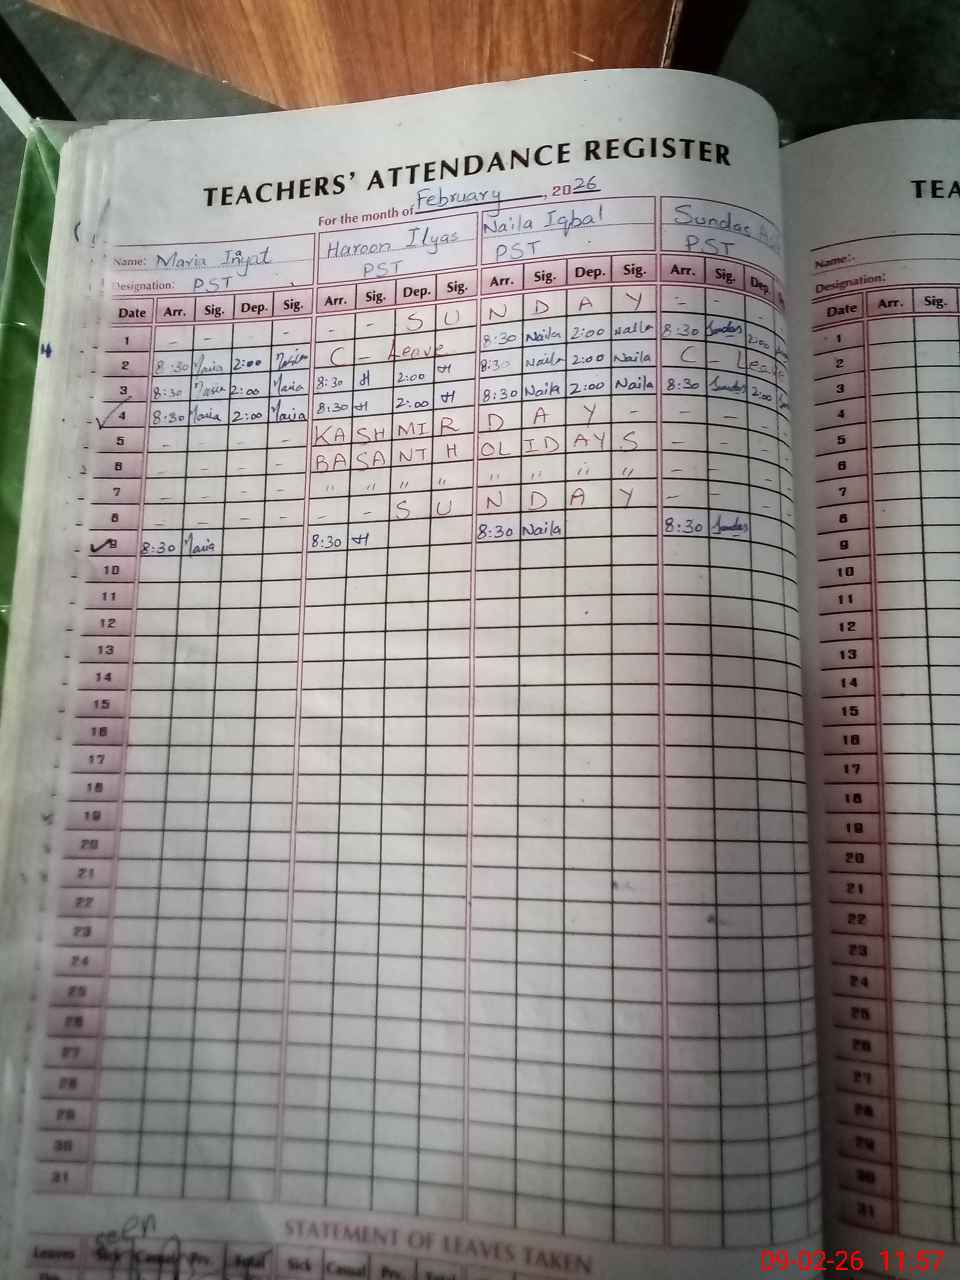 TEACHERS' ATTENDANCE REGISTER
For the month of February, 2026
Name: Maria Inyat Haroon Ilyas Naila Iqbal Sundas
Designation: PST PST PST PST
Date Arr. Sig. Dep. Sig. Arr. Sig. Dep. Sig. Arr. Sig. Dep. Sig. Arr. Sig. Dep.
1 - - - - - - S U N D A Y - - -
2 8:30 Maria 2:00 Maria C - Leave 8:30 Naila 2:00 Naila 8:30 Sundas 2:00
3 8:30 Maria 2:00 Maria 8:30 H 2:00 H 8:30 Naila 2:00 Naila C Leave
4 8:30 Maria 2:00 Maria 8:30 H 2:00 H 8:30 Naila 2:00 Naila 8:30 Sundas 2:00
5 - - - - KA SH MI R D A Y - - - -
6 - - - - BA SA NT H OL ID AY S - - -
7 - - - - " " " " " " " " - - -
8 - - - - - - S U N D A Y - -
9 8:30 Maria 8:30 H 8:30 Naila 8:30 Sundas
10
11
12
13
14
15
16
17
18
19
20
21
22
23
24
25
26
27
28
29
30
31
STATEMENT OF LEAVES TAKEN
seen
Leaves Sick Casual Prv. Total Sick Casual Prv. Total
TEA
Name:-
Designation:
Date Arr. Sig.
1
2
3
4
5
6
7
8
9
10
11
12
13
14
15
16
17
18
19
20
21
22
23
24
25
26
27
28
29
30
31
09-02-26 11:57